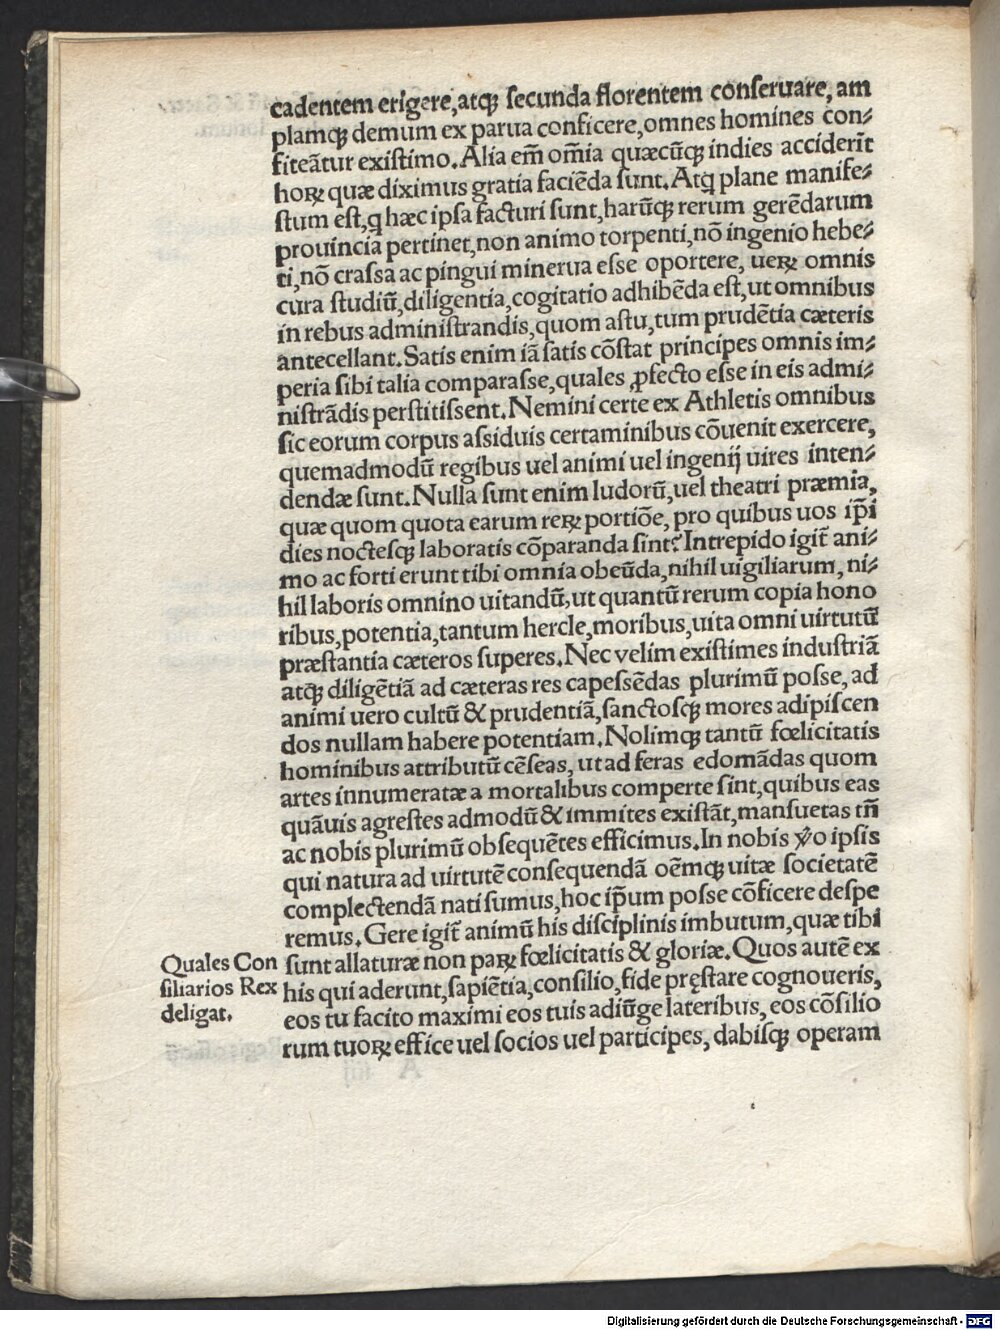 cadentem erigere, atqꝫ secunda florentem conseruare, am
plamqꝫ demum ex parua conficere, omnes homines con⸗
fiteãtur existimo. Alia em̃ om̃ia quæcũqꝫ indies acciderit̃
horꝝ quæ diximus gratia faciẽda sunt. Atq̃ plane manife⸗
stum est, q hæc ipsa facturi sunt, harũqꝫ rerum gerẽdarum
prouincia pertinet, non animo torpenti, nõ ingenio hebe⸗
ti, nõ crassa ac pingui minerua esse oportere, uerꝝ omnis
cura studiũ, diligentia, cogitatio adhibẽda est, ut omnibus
in rebus administrandis, quom astu, tum prudẽtia cæteris
antecellant. Satis enim iã satis cõstat principes omnis im⸗
peria sibi talia comparasse, quales ꝓfecto esse in eis admi⸗
nistrãdis perstitissent. Nemini certe ex Athletis omnibus
sic eorum corpus assiduis certaminibus cõuenit exercere,
quemadmodũ regibus uel animi uel ingenij uires inten⸗
dendæ sunt. Nulla sunt enim ludorũ, uel theatri præmia,
quæ quom quota earum rerꝝ portiõe, pro quibus uos ip̃i
dies noctesqꝫ laboratis cõparanda sint? Intrepido igit̃ ani⸗
mo ac forti erunt tibi omnia obeũda, nihil uigiliarum, ni⸗
hil laboris omnino uitandũ, ut quantũ rerum copia hono
ribus, potentia, tantum hercle, moribus, uita omni uirtutũ
præstantia cæteros superes. Nec velim existimes industriã
atqꝫ diligẽtiã ad cæteras res capessẽdas plurimũ posse, ad
animi uero cultũ & prudentiã, sanctosqꝫ mores adipiscen
dos nullam habere potentiam. Nolimqꝫ tantũ fœlicitatis
hominibus attributũ cẽseas, ut ad feras edomãdas quom
artes innumeratæ a mortalibus comperte sint, quibus eas
quãuis agrestes admodũ & immites existãt, mansuetas tñ
ac nobis plurimũ obsequẽtes efficimus. In nobis ṽo ipsis
qui natura ad uirtutẽ consequendã oẽmqꝫ uitæ societatẽ
complectendã nati sumus, hoc ip̃um posse cõficere despe
remus. Gere igit̃ animũ his disciplinis imbutum, quæ tibi
sunt allaturæ non parꝝ fœlicitatis & gloriæ. Quos autẽ ex
his qui aderunt, sapiẽtia, consilio, fide pręstare cognoueris,
eos tu facito maximi eos tuis adiũge lateribus, eos cõsilio
rum tuorꝝ effice uel socios uel participes, dabisqꝫ operam
Quales Con
siliarios Rex
deligat.
Digitalisierung gefördert durch die Deutsche Forschungsgemeinschaft - DFG